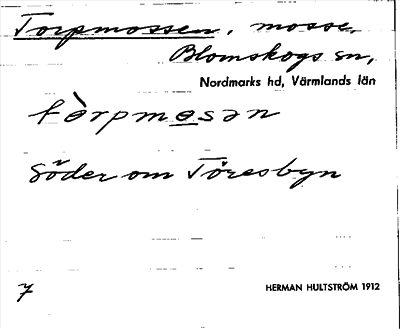 Torpmossen, mosse,
Blomskogs sn,
Nordmarks hd, Värmlands län
tòrpmosən
Söder om Töresbyn
7
HERMAN HULTSTRÖM 1912